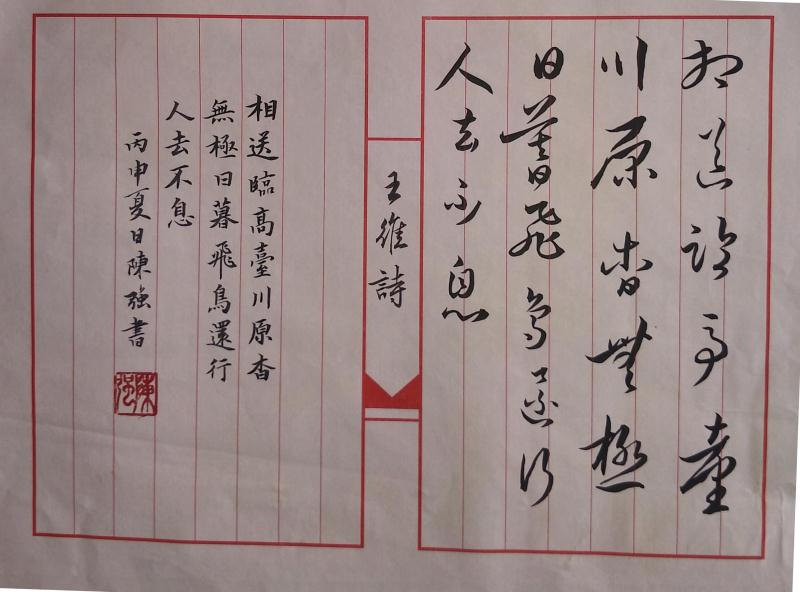 相送臨高臺
川原杳無極
日暮飛鳥還行
人去不息
王維詩
相送臨高臺川原杳
無極日暮飛鳥還行
人去不息
丙申夏日陳强書
陳强